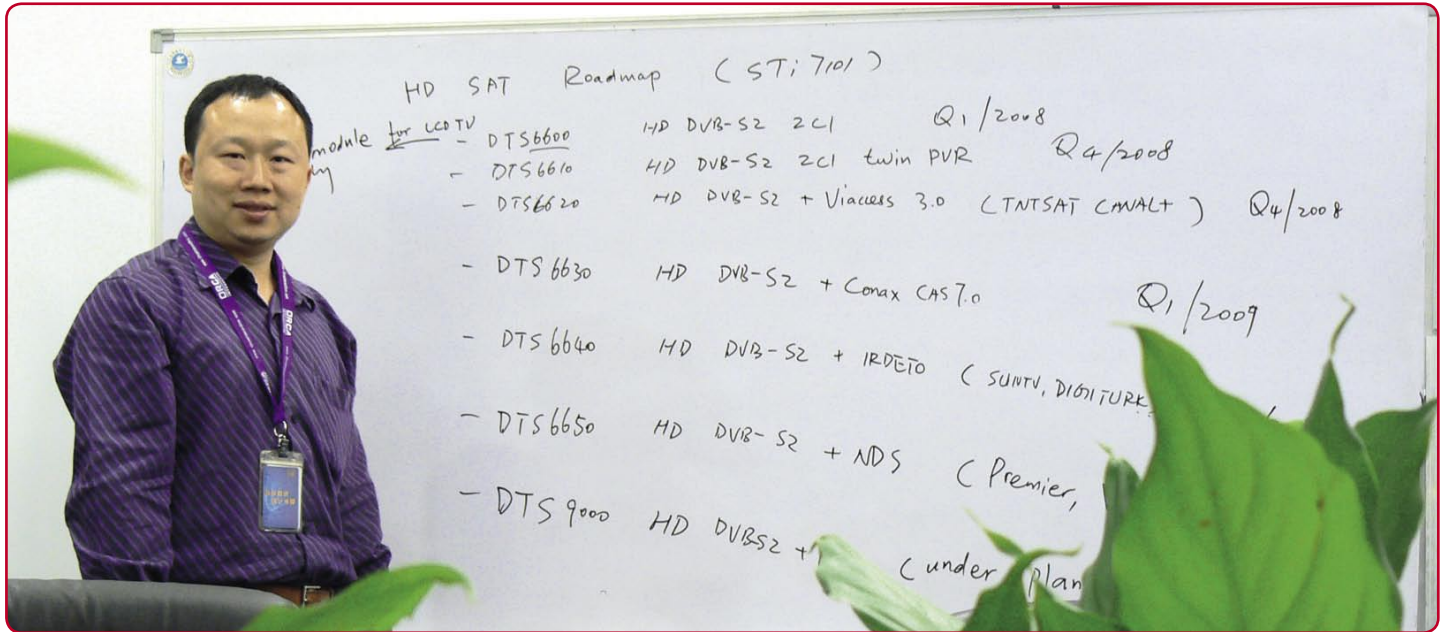 HD SAT Roadmap (STi7101)
module for LCDTV
- DTS6600 HD DVB-S2 2CI Q1/2008
- DTS6610 HD DVB-S2 2CI twin PVR Q4/2008
- DTS6620 HD DVB-S2 + Viaccess 3.0 (TNTSAT CANAL+) Q4/2008
- DTS6630 HD DVB-S2 + Conax CAS7.0 Q1/2009
- DTS6640 HD DVB-S2 + IRDETO (SUNTV, DIGITURK
- DTS6650 HD DVB-S2 + NDS (Premier,
- DTS9000 HD DVBS2 + (under plan
ORCA
ORCA